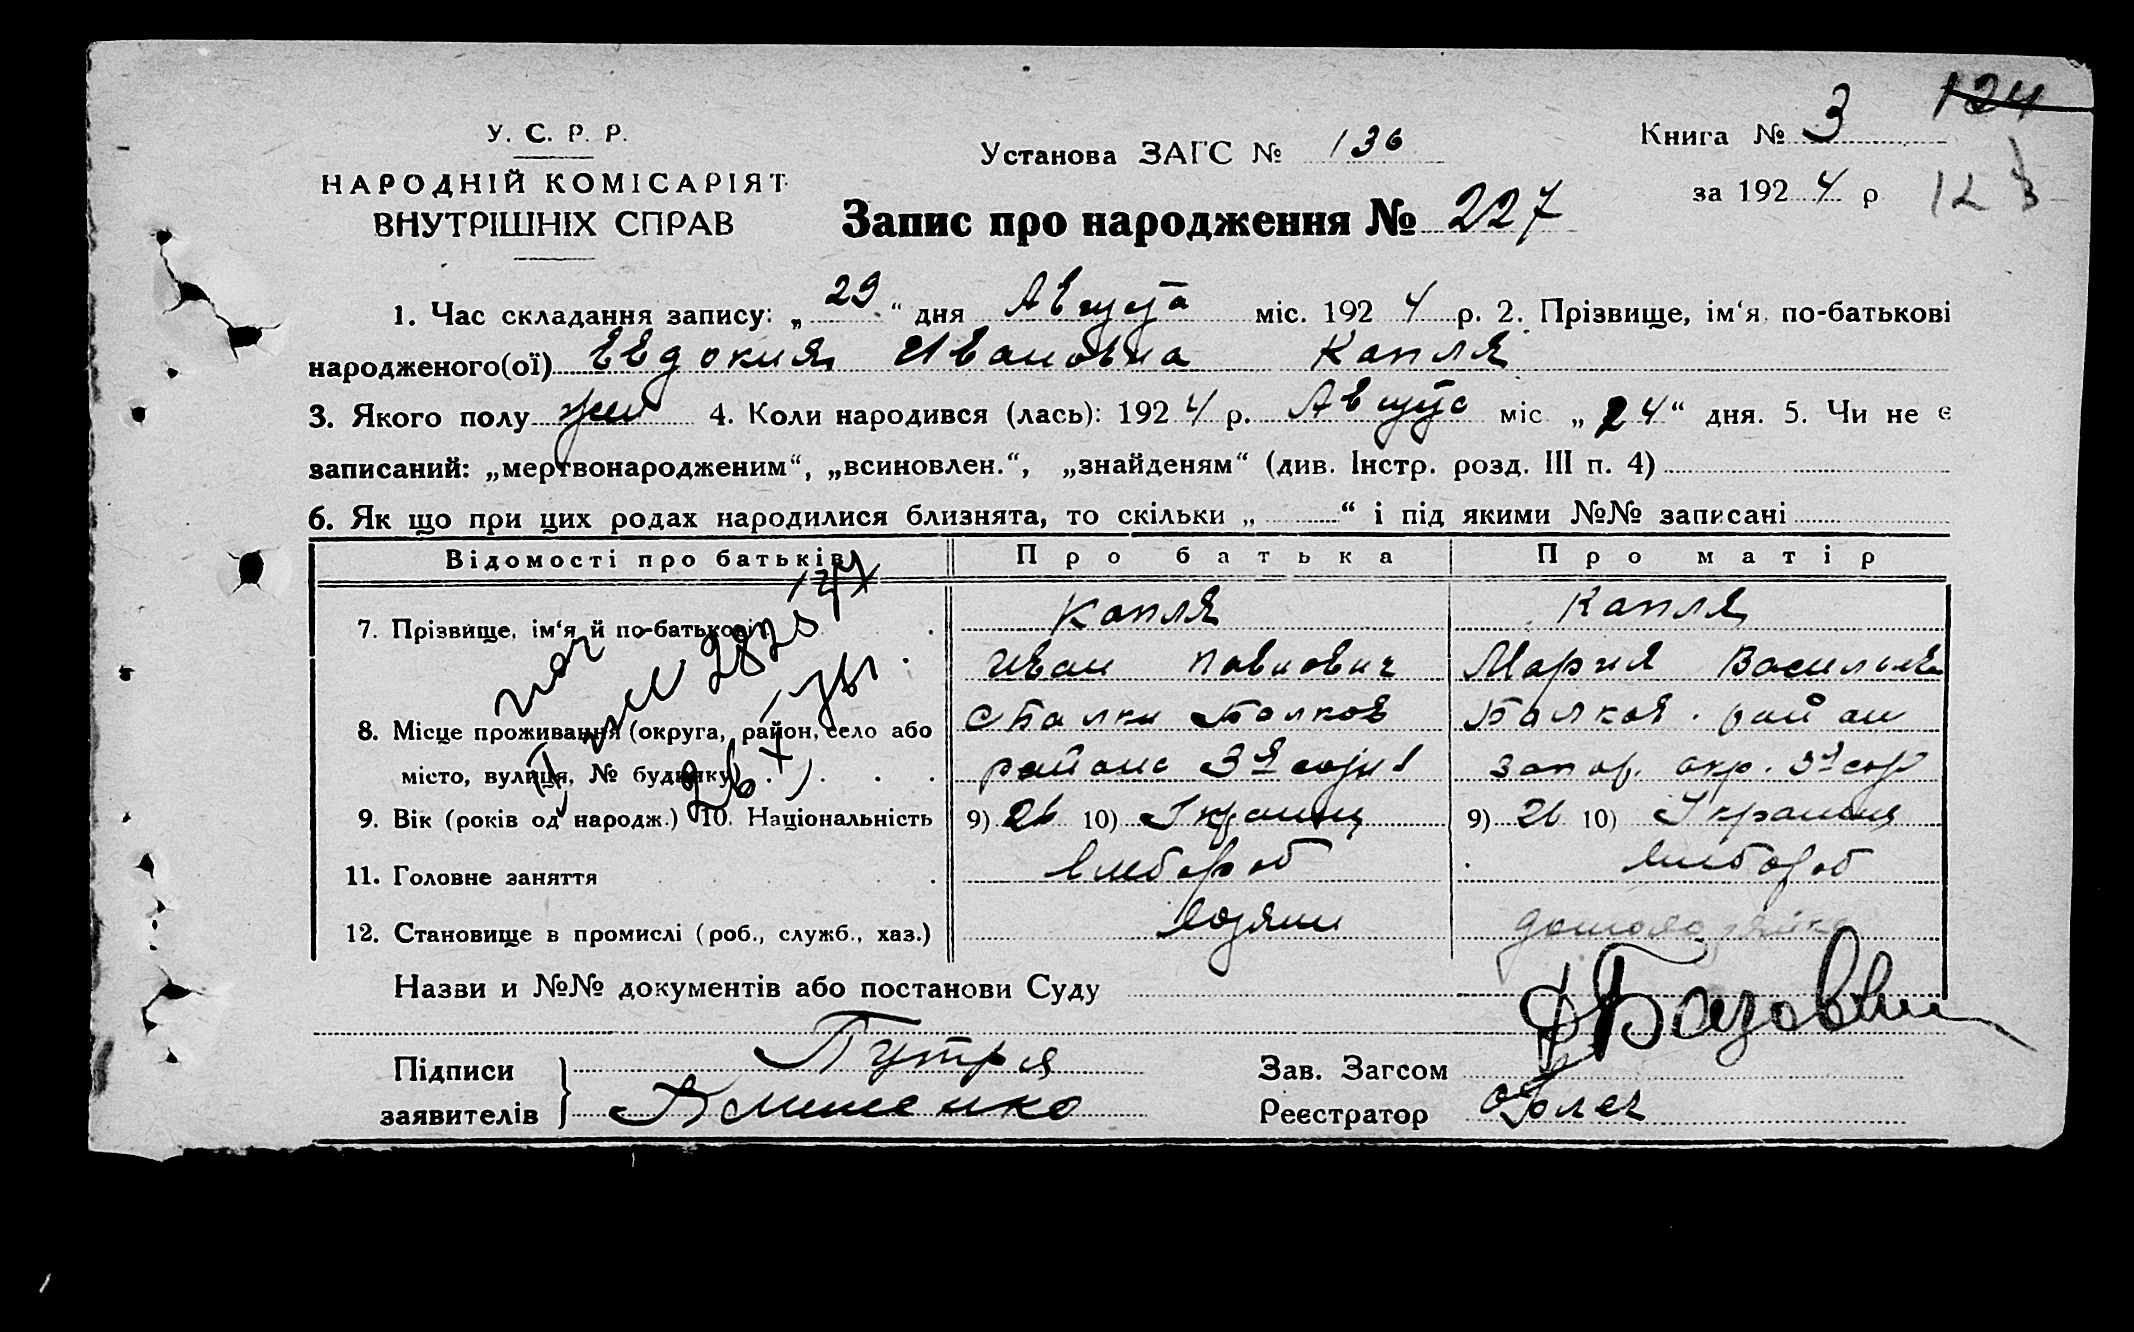 124
У. С. Р. Р.
Установа ЗАГС № 136
Книга № 3
НАРОДНІЙ КОМІСАРІЯТ
за 192 4 р
ВНУТРІШНІХ СПРАВ
Запис про народження № 227
1. Час складання запису: „ 29 “ дня Августа міс. 192 4 р. 2. Прізвище, ім‘я по-батькові
народженого(ої) Евдокия Ивановна Капля
3. Якого полу жен 4. Коли народився (лась): 192 4 р. Августа міс „ 24 “ дня. 5. Чи не є
записаний: „мертвонародженим“, „всиновлен.“, „знайденям“ (див. Інстр. розд. III п. 4)
6. Як що при цих родах народилися близнята, то скільки „ “ і під якими №№ записані
Відомості про батьків
Про батька
Про матір
7. Прізвище, ім‘я й по-батькові
Капля
Капля
Иван Павлович
Мария
8. Місце проживання (округа, район, село або
місто, вулиця, № будинку)
района
9. Вік (років од народж.) 10. Національність
9) 26 10) Украинц
9) 26 10)
11. Головне заняття
хлебороб
хлебороб
12. Становище в промислі (роб., служб., хаз.)
хозяин
домохозяйка
Назви и №№ документів або постанови Суду
Підписи
заявителів
Путря
Клименко
Зав. Загсом
Реєстратор